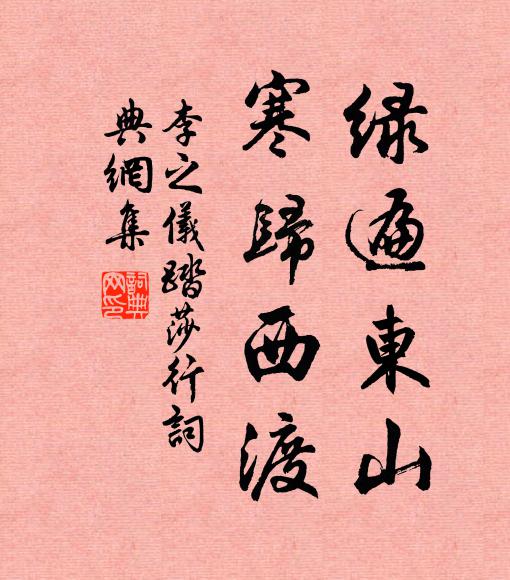 绿遍東山
寒歸西渡
李之儀踏莎行詞
典網集
詞典
网印